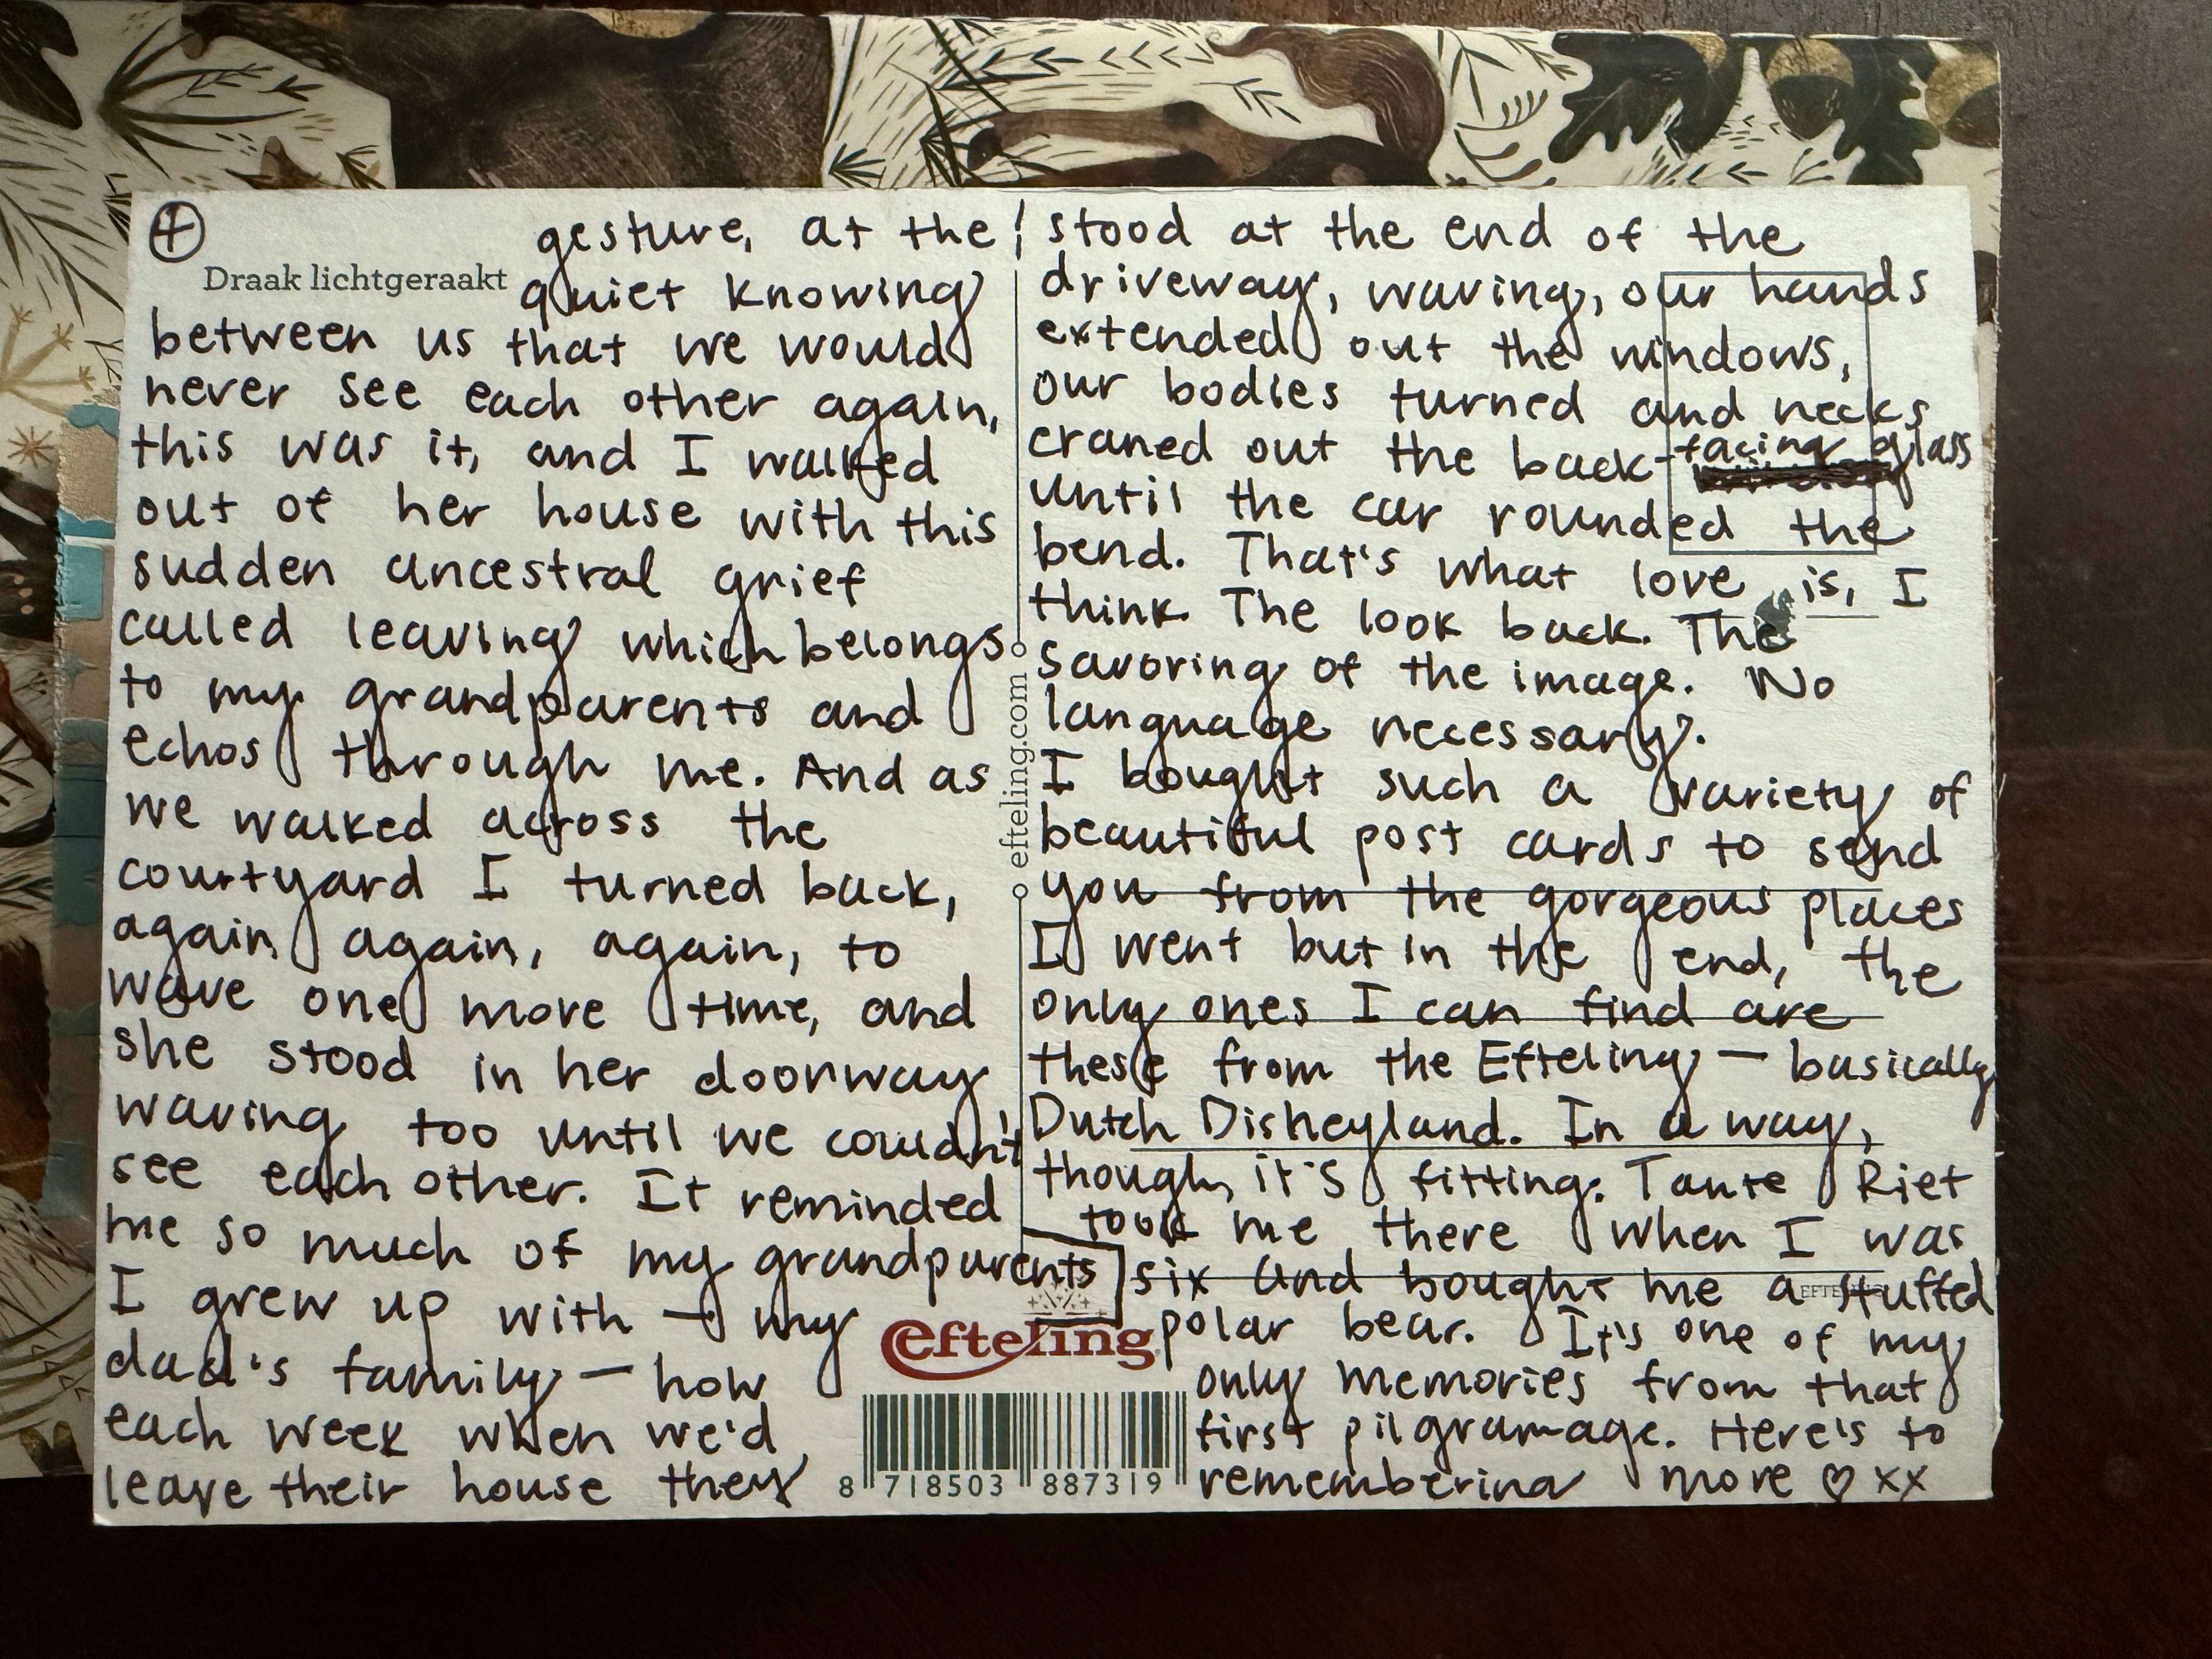 ④
gesture, at the
Draak lichtgeraakt
quiet knowing
between us that we would
never see each other again,
this was it, and I walked
out of her house with this
sudden ancestral grief
called leaving which belongs
to my grandparents and
echos through me. And as
we walked across the
courtyard I turned back,
again, again, again, to
wave one more time, and
she stood in her doorway
waving too until we couldn't
see each other. It reminded
me so much of my grandparents
I grew up with — my
dad's family — how
each week when we'd
leave their house they
stood at the end of the
driveway, waving, our hands
extended out the windows,
our bodies turned and necks
craned out the back-facing glass
until the car rounded the
bend. That's what love is, I
think. The look back. The
savoring of the image. No
language necessary.
I bought such a variety of
beautiful post cards to send
you from the gorgeous places
I went but in the end, the
only ones I can find are
these from the Efteling — basically
Dutch Disneyland. In a way,
though, it's fitting. Tante Riet
took me there when I was
six and bought me a stuffed
polar bear. It's one of my
only memories from that
first pilgramage. Here's to
remembering more ♡ xx
efteling.com
efteling
8 718503 887319